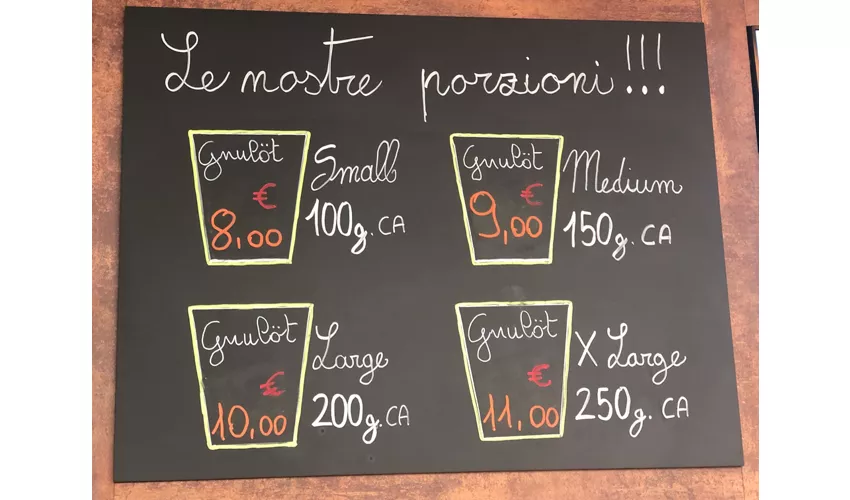 Le nostre porzioni!!!
Gnulöt
€
8,00
Small
100g. CA
Gnulöt
€
9,00
Medium
150g. CA
Gnulöt
€
10,00
Large
200g. CA
Gnulöt
€
11,00
X Large
250g. CA